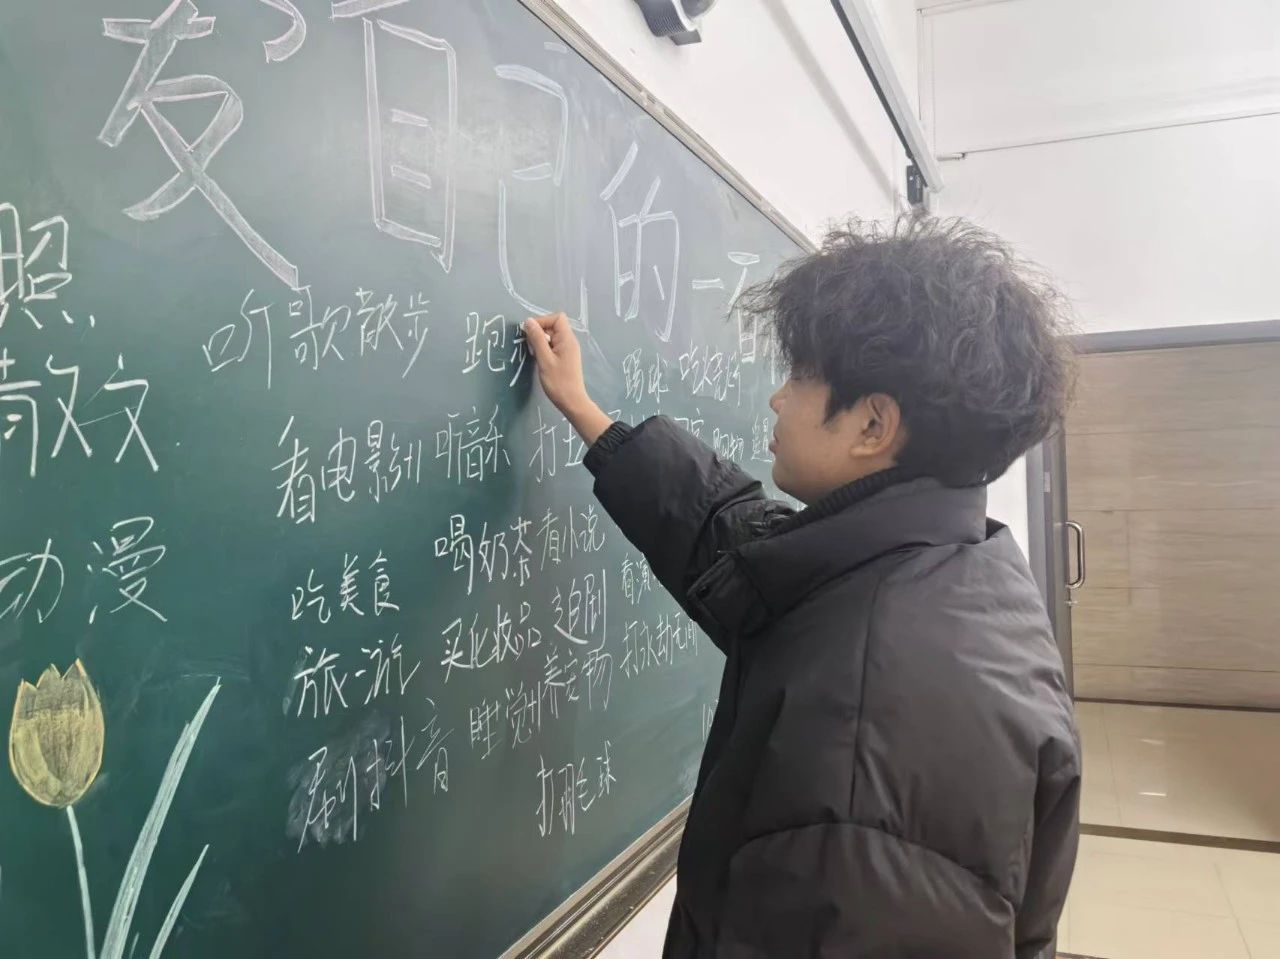 友自己的一百
照 听歌 散步 跑步 踢球 吃烧烤
散文 看电影 听音乐 打 购物
动漫 吃美食 喝奶茶 看小说
旅游 买化妆品 追剧 打永劫无间
刷抖音 睡觉 养宠物
打羽毛球